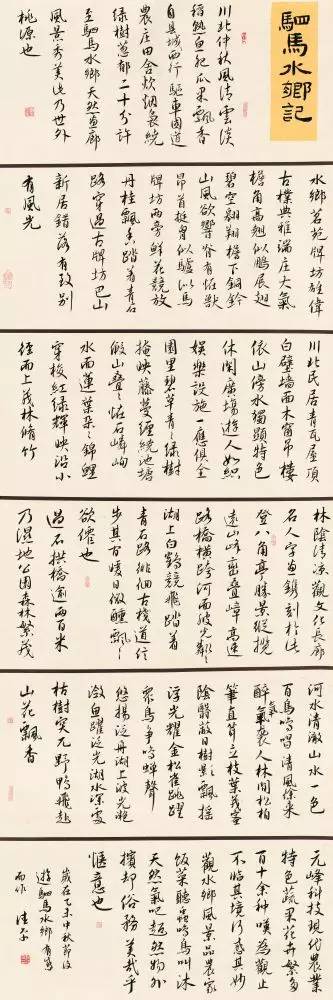 駟馬水鄉記
川北仲秋風清雲淡
稻熟魚肥瓜果飄香
自縣城西行驅車國道
農莊田舍炊烟裊繞
綠樹蔥郁二十分許
至駟馬水鄉天然畫廊
風景秀美此乃世外
桃源也
水鄉茗苑牌坊雄偉
古樸典雅端莊大氣
檐角高翹似鵬展翅
碧空翱翔檐下銅鈴
山風欲響脊有怪獸
昂首挺胸似驢似馬
牌坊兩旁鮮花競放
丹桂飄香踏着青石
路穿過古牌坊巴山
新居錯落有致別
有風光
川北民居青瓦屋頂
白壁墻面木窗吊樓
依山傍水獨顯特色
休閑廣場遊人如織
娛樂設施一應俱全
園里碧草青青綠樹
掩映藤蔓纏繞池塘
假山疊疊怪石嶙峋
水面蓮葉朵朵錦鯉
穿梭紅綠輝映沿小
徑而上茂林脩竹
林陰清涼觀文化長廊
名人字畫鐫刻於此
登八角亭勝景縱攬
遠山峰巒疊嶂高速
路橋橫跨河面波光粼粼
湖上白鷗競飛踏着
青石路徘徊古棧道信
步其方日微醺飄飄
欲僊也
過石拱橋逾兩百米
乃濕地公園森林繁茂
河水清澈山水一色
百鳥鳴唱清風徐來
醉氣襲人林間松柏
筆直立枝葉茂密
陰翳蔽日樹影飄搖
浮光耀金松雀跳躍
衆鳥爭鳴蟬聲
悠揚泛舟湖上波光瀲
灩魚躍泛光湖水深處
枯樹突兀野鴨飛起
山花飄香
元峰科技現代農業
特色蔬果花卉繁多
百十余種嘆為觀止
不臨其境何悉其妙
觀水鄉風景品農家
飯菜聽蟲鳴鳥叫沐
天然氧吧超然物外
擯却俗務美哉乎
愜意也
歲在乙未中秋節後
遊駟馬水鄉有感
而作